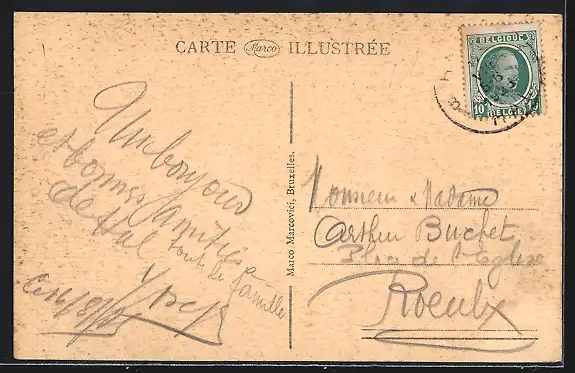 CARTE Marco ILLUSTRÉE
BELGIQUE
10
BELGIË
Un bonjour
et bonnes amitiés à
de Hal tout la famille
Marco Marcovici, Bruxelles.
Monsieur & Madame
Arthur Buchet
Place de l'Eglise
Roeulx